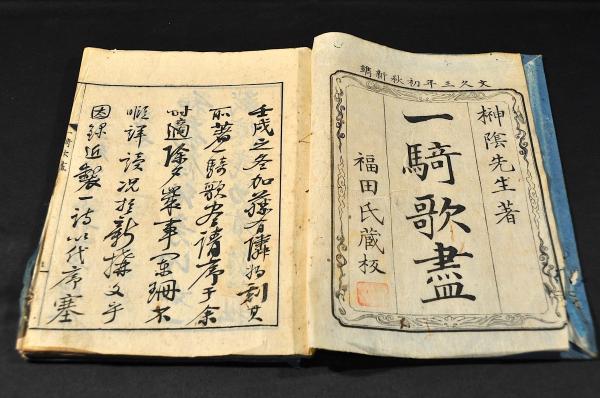 文久三年初秋新鐫
榊陰先生著
一騎歌盡
福田氏蔵板
壬戌之冬加藤有隣将刻其
所著一騎歌尽請序于余
時適除夕業事闌珊不
暇詳読況於新撰文乎
因録近製一詩以代序塞